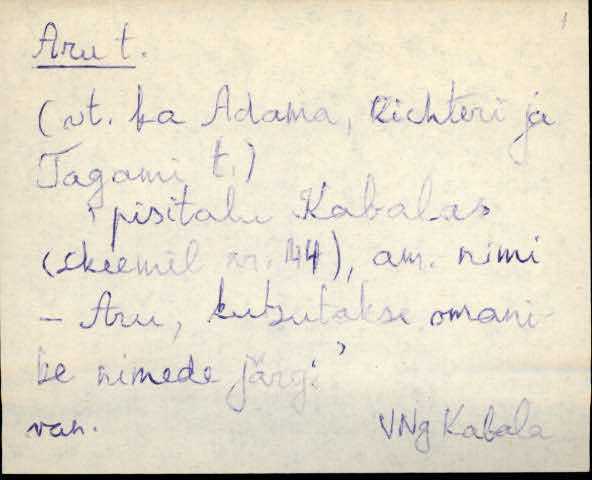 1
Aru t.
(vt. ka Adama, Richteri ja
Tagami t.)
'pisitalu Kabalas
(skeemil nr. 44), am. nimi
- Aru, kutsutakse omani-
ke nimede järgi'
van. VNg Kabala